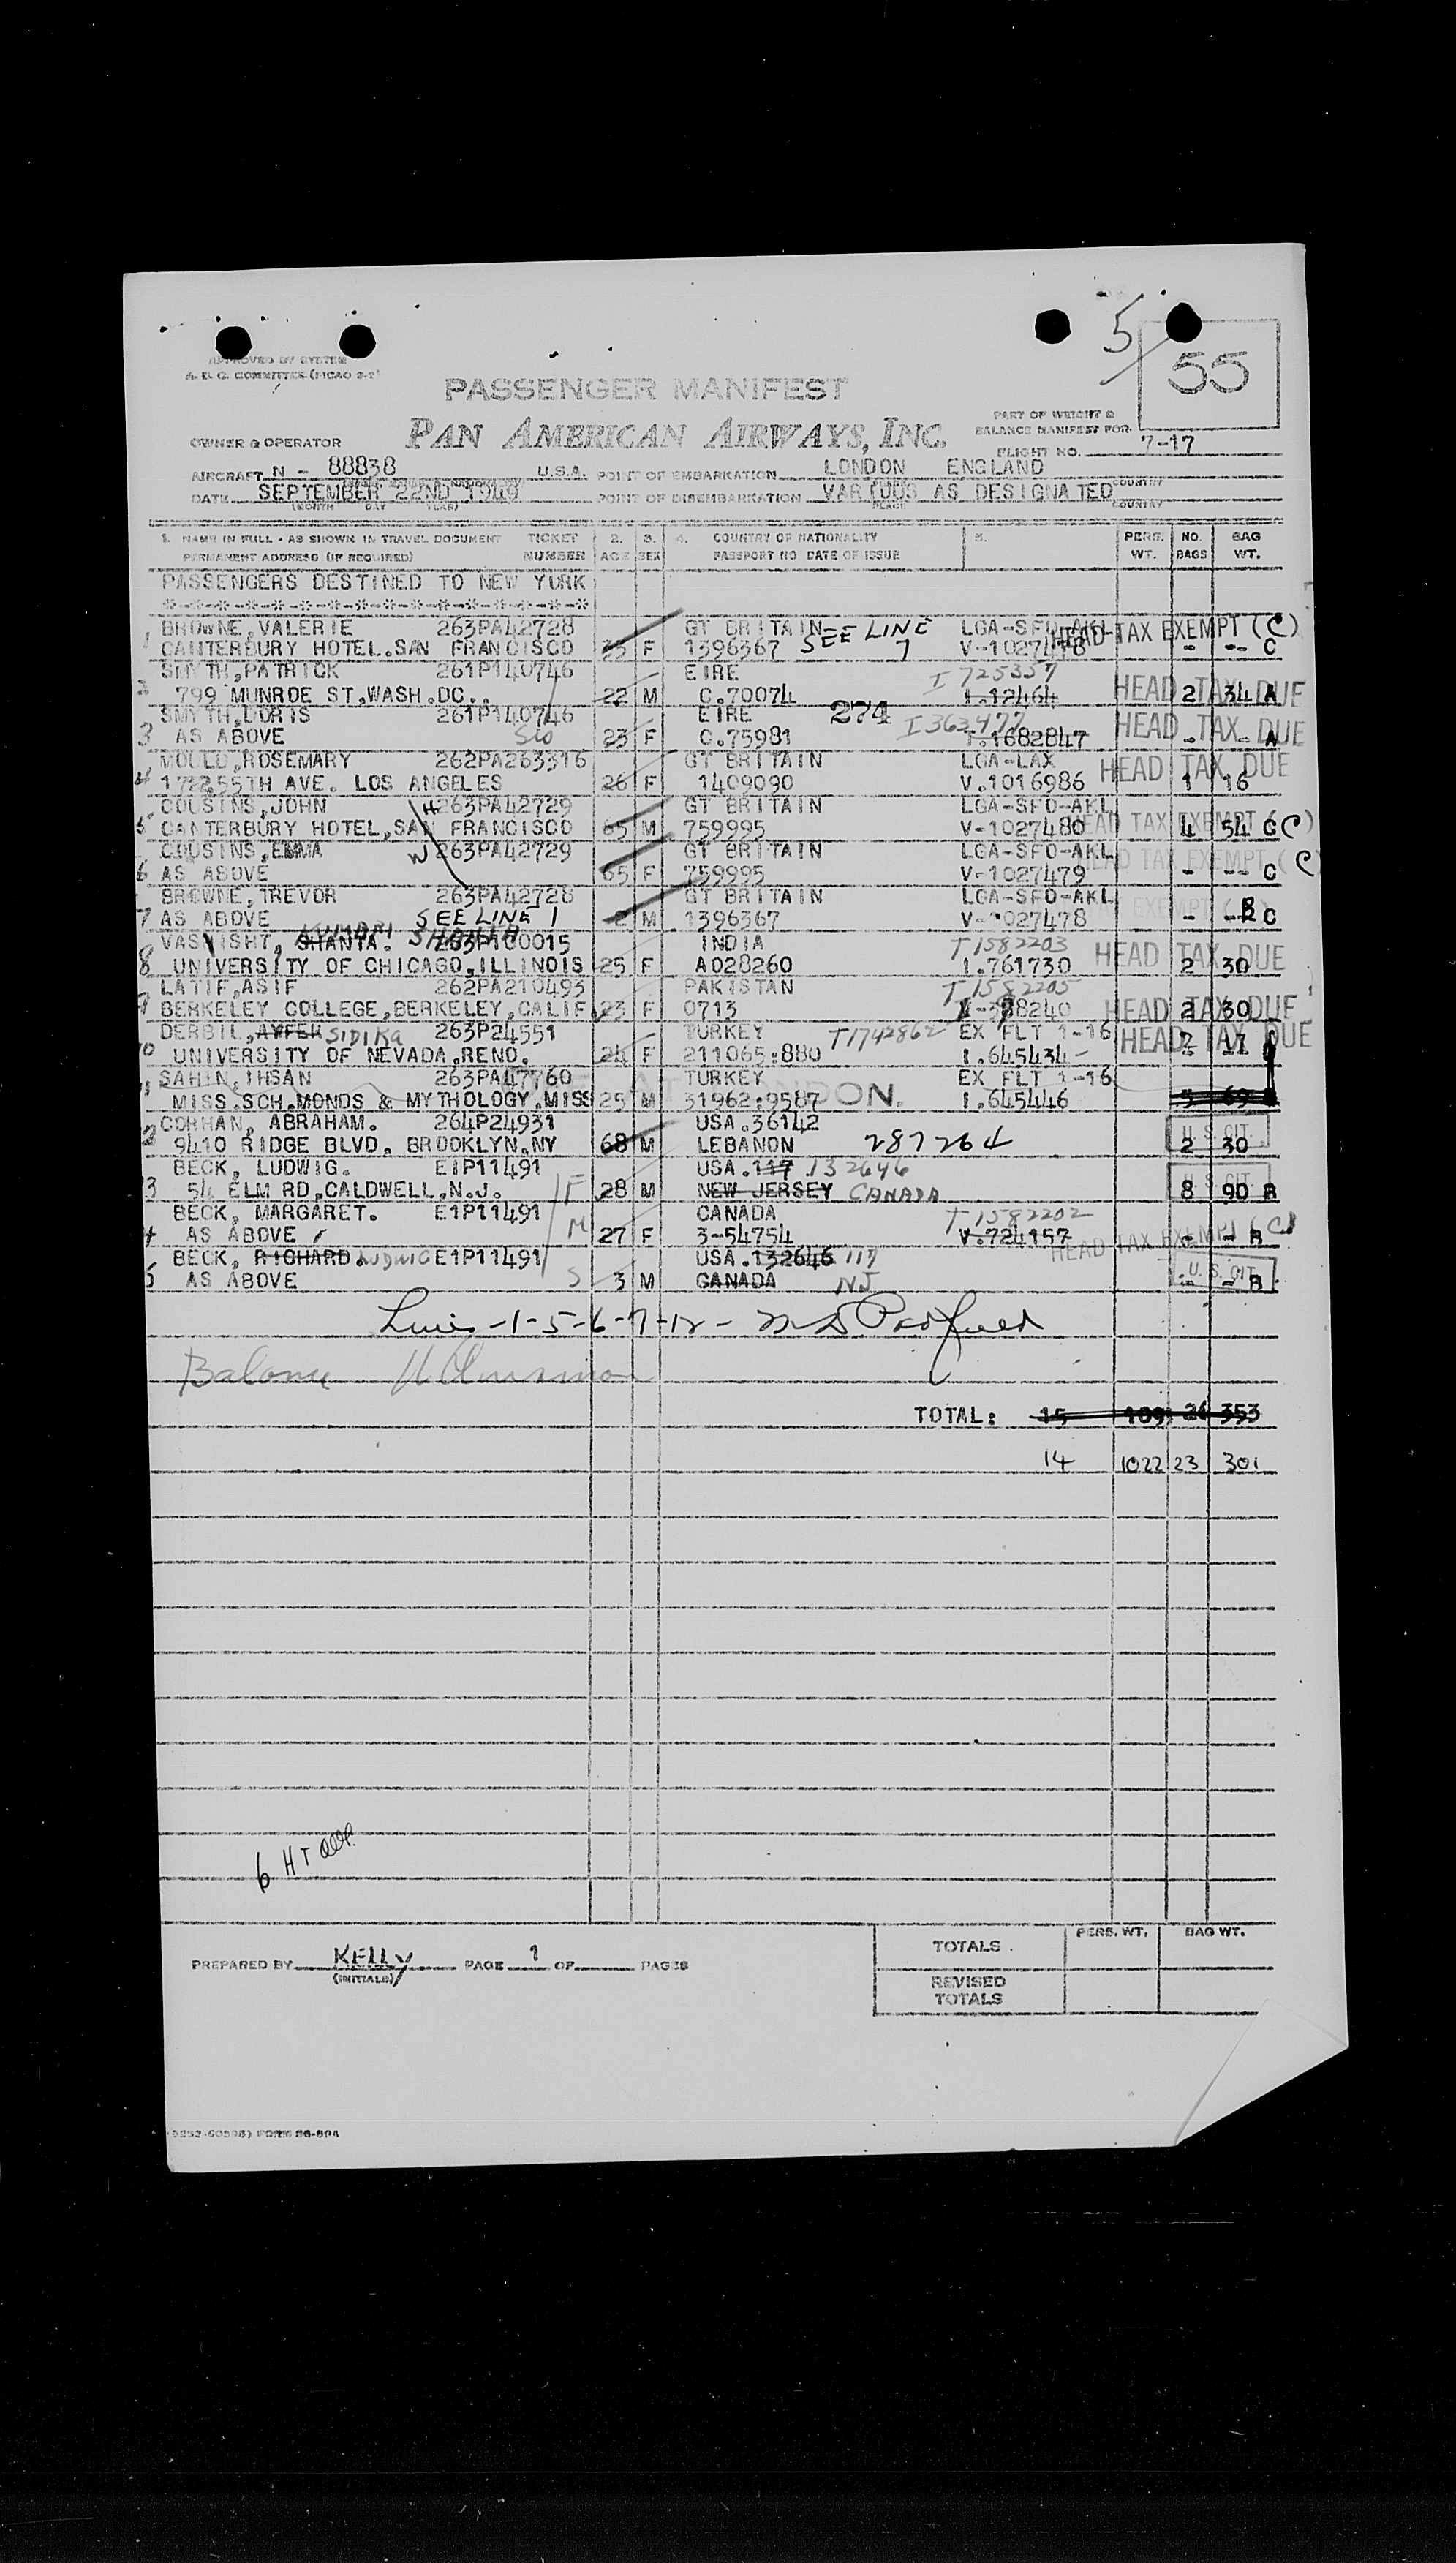 5
55
APPROVED BY SYSTEM
A. D. C. COMMITTEE (PICAO 2-2)
PASSENGER MANIFEST
PAN AMERICAN AIRWAYS, INC.
PART OF WEIGHT &
BALANCE MANIFEST FOR
OWNER & OPERATOR
FLIGHT NO. 7-17
AIRCRAFT N - 88838 U.S.A. POINT OF EMBARKATION LONDON ENGLAND
COUNTRY
DATE SEPTEMBER 22ND 1949 POINT OF DISEMBARKATION VARIOUS AS DESIGNATED
(MONTH DAY YEAR) PLACE COUNTRY
1. NAME IN FULL - AS SHOWN IN TRAVEL DOCUMENT TICKET 2. 3. 4. COUNTRY OF NATIONALITY 5. PERS. NO. BAG
PERMANENT ADDRESS (IF REQUIRED) NUMBER AGE SEX PASSPORT NO DATE OF ISSUE WT. BAGS WT.
PASSENGERS DESTINED TO NEW YORK
*-*-*-*-*-*-*-*-*-*-*-*-*-*-*-*
1 BROWNE,VALERIE 263PA42728 GT BRITAIN SEE LINE LGA-SFO-AKL HEAD TAX EXEMPT (C)
CANTERBURY HOTEL.SAN FRANCISCO F 1396367 7 V-1027478 - -- C
SMYTH,PATRICK 261P140746 EIRE I 725357
2 799 MUNROE ST,WASH.DC.. 22 M C.70074 I.12464 HEAD TAX DUE 2 34 A
SMYTH,DORIS 261P140746 EIRE 274 I363477
3 AS ABOVE 23 F C.75981 I.1682847 HEAD TAX DUE - - A
MOULD,ROSEMARY 262PA263316 GT BRITAIN LGA-LAX
4 1722.55TH AVE. LOS ANGELES 26 F 1409090 V.1016986 HEAD TAX DUE 1 16
COUSINS,JOHN H 263PA42729 GT BRITAIN LGA-SFO-AKL
5 CANTERBURY HOTEL,SAN FRANCISCO 65 M 759995 V-1027480 HEAD TAX EXEMPT (C) 4 54 C
COUSINS,EMMA W 263PA42729 GT BRITAIN LGA-SFO-AKL
6 AS ABOVE 65 F 759995 V-1027479 HEAD TAX EXEMPT (C - -- C
BROWNE,TREVOR 263PA42728 GT BRITAIN LGA-SFO-AKL
7 AS ABOVE SEE LINE 1 2 M 1396367 V-1027478 TAX EXEMPT - -- C
VASVISHT, KUMARI SHANTA. 263P100015 INDIA T1582203
8 UNIVERSITY OF CHICAGO,ILLINOIS 25 F A028260 I.761730 HEAD TAX DUE 2 30
LATIF,ASIF 262PA210493 PAKISTAN T-1582205
9 BERKELEY COLLEGE,BERKELEY,CALIF 23 F 0713 HEAD TAX DUE 2 30
DERBIL,AYFER SIDIKA 263P24551 TURKEY T1742862 EX FLT 1-16
10 UNIVERSITY OF NEVADA,RENO. 24 F 211065:880 I.645434 HEAD TAX DUE 2 17
11 SAHIN,IHSAN 263PA47760 TURKEY EX FLT 1-16
MISS.SCH.MONDS & MYTHOLOGY.MISS 25 M 31962:9587 I.645446 5 69
CORHAN, ABRAHAM. 264P24931 USA.36142
9410 RIDGE BLVD. BROOKLYN.NY 68 M LEBANON 287264 U.S. CIT. 2 30
BECK, LUDWIG. E1P11491 USA.117 .132646
3 54 ELM RD,CALDWELL,N.J. F 28 M NEW JERSEY CANADA U.S. CIT. 8 90 B
BECK, MARGARET. E1P11491 CANADA T1582202
4 AS ABOVE M 27 F 3-54754 V.724157 HEAD TAX EXEMPT (C) - - B
BECK, RICHARD LUDWIG E1P11491 USA.132646 117
5 AS ABOVE S 3 M CANADA NJ U.S. CIT. - - B
Lines -1-5-6-7-12-
Balance
TOTAL: 15 109 26 353
14 1022 23 301
6 HT
PREPARED BY KELLY PAGE 1 OF PAGES
(INITIALS)
TOTALS PERS. WT. BAG WT.
REVISED
TOTALS